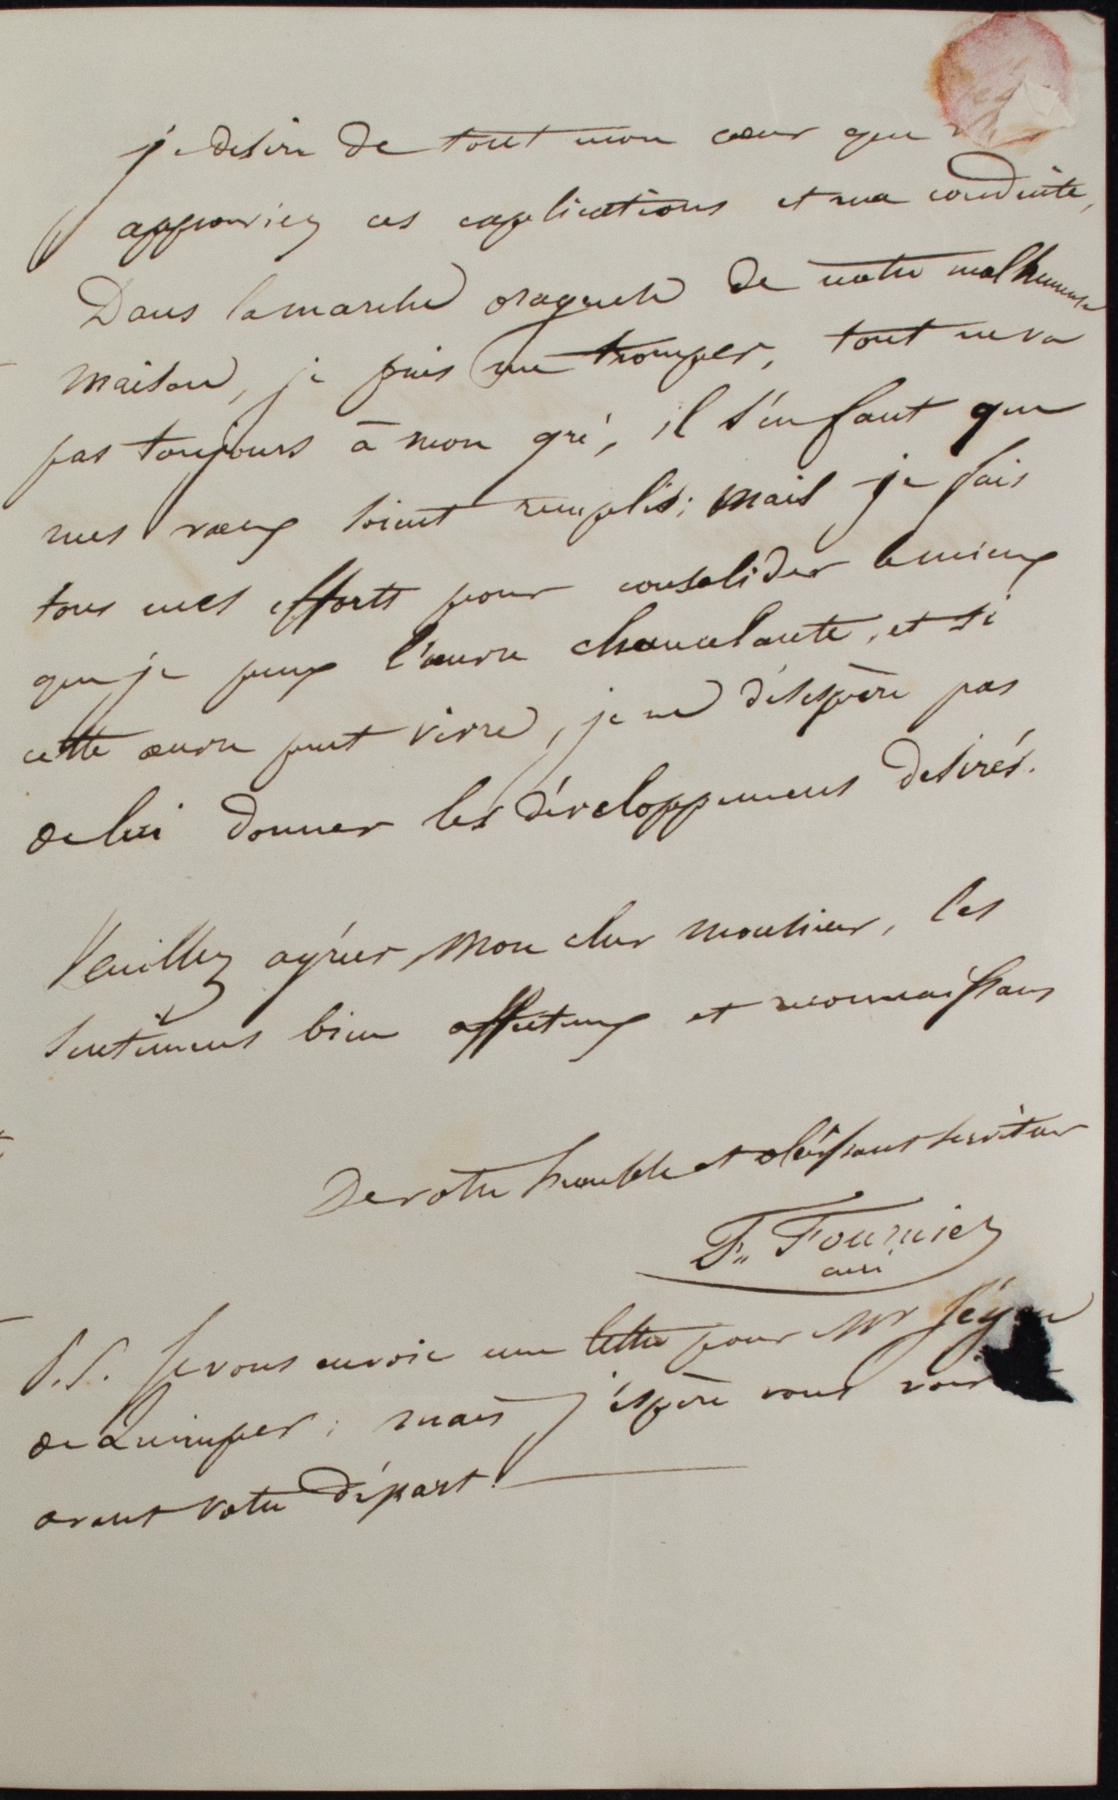 je desire de tout mon cœur que
approuviez ces explications et ma conduite,
Dans la marche orageuse de notre malheureuse
maison, je puis me tromper, tout ne va
pas toujours à mon gré, il s'en faut que
mes vœux soient remplis; mais je fais
tous mes efforts pour consolider le mieux
que je peux l'œuvre chancelante, et si
cette œuvre peut vivre, je ne désespère pas
de lui donner les développemens desirés.
Veuillez agréer mon cher monsieur, les
sentimens bien affectueux et reconnaissans
De votre humble et obéissant serviteur
F. Fournier
curé
P.S. Je vous envoie une lettre pour Mr
de Quimper; mais j'espère vous voir
avant votre départ.